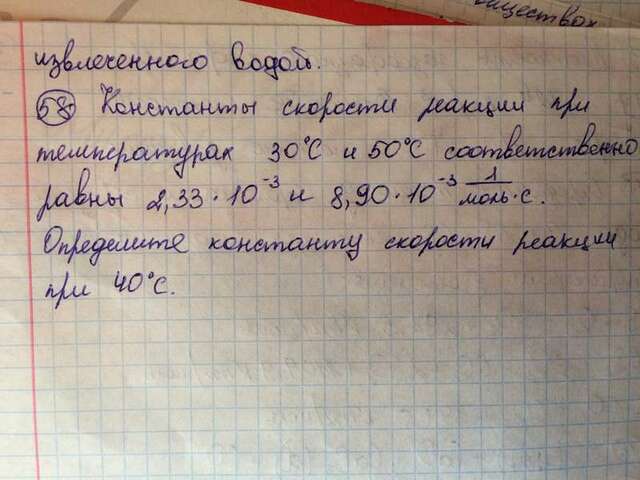 извлеченного водой.
58 Константы скорости реакции при
температурах 30°С и 50°С соответственно
равны 2,33·10⁻³ и 8,90·10⁻³ 1/моль·с.
Определите константу скорости реакции
при 40°С.